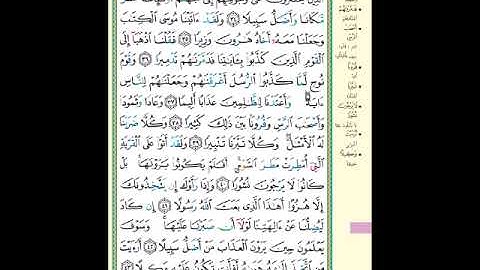 الَّذِينَ يُحْشَرُونَ عَلَىٰ وُجُوهِهِمْ إِلَىٰ جَهَنَّمَ
مَّكَانًا وَأَضَلُّ سَبِيلًا ٣٤ وَلَقَدْ ءَاتَيْنَا مُوسَى الْكِتَٰبَ
وَجَعَلْنَا مَعَهُۥٓ أَخَاهُ هَٰرُونَ وَزِيرًا ٣٥ فَقُلْنَا اذْهَبَآ إِلَى
الْقَوْمِ الَّذِينَ كَذَّبُوا۟ بِـَٔايَٰتِنَا فَدَمَّرْنَٰهُمْ تَدْمِيرًا ٣٦ وَقَوْمَ
نُوحٍ لَّمَّا كَذَّبُوا۟ الرُّسُلَ أَغْرَقْنَٰهُمْ وَجَعَلْنَٰهُمْ لِلنَّاسِ
ءَايَةً وَأَعْتَدْنَا لِلظَّٰلِمِينَ عَذَابًا أَلِيمًا ٣٧ وَعَادًا وَثَمُودَا۟
وَأَصْحَٰبَ الرَّسِّ وَقُرُونًۢا بَيْنَ ذَٰلِكَ كَثِيرًا ٣٨ وَكُلًّا ضَرَبْنَا
لَهُ الْأَمْثَٰلَ وَكُلًّا تَبَّرْنَا تَتْبِيرًا ٣٩ وَلَقَدْ أَتَوْا۟ عَلَى الْقَرْيَةِ
الَّتِىٓ أُمْطِرَتْ مَطَرَ السَّوْءِ أَفَلَمْ يَكُونُوا۟ يَرَوْنَهَا بَلْ
كَانُوا۟ لَا يَرْجُونَ نُشُورًا ٤٠ وَإِذَا رَأَوْكَ إِن يَتَّخِذُونَكَ
إِلَّا هُزُوًا أَهَٰذَا الَّذِى بَعَثَ اللَّهُ رَسُولًا ٤١ إِن كَادَ
لَيُضِلُّنَا عَنْ ءَالِهَتِنَا لَوْلَآ أَن صَبَرْنَا عَلَيْهَا وَسَوْفَ
يَعْلَمُونَ حِينَ يَرَوْنَ الْعَذَابَ مَنْ أَضَلُّ سَبِيلًا ٤٢ أَرَءَيْتَ
مَنِ اتَّخَذَ إِلَٰهَهُۥ هَوَىٰهُ أَفَأَنتَ تَكُونُ عَلَيْهِ وَكِيلًا ٤٣